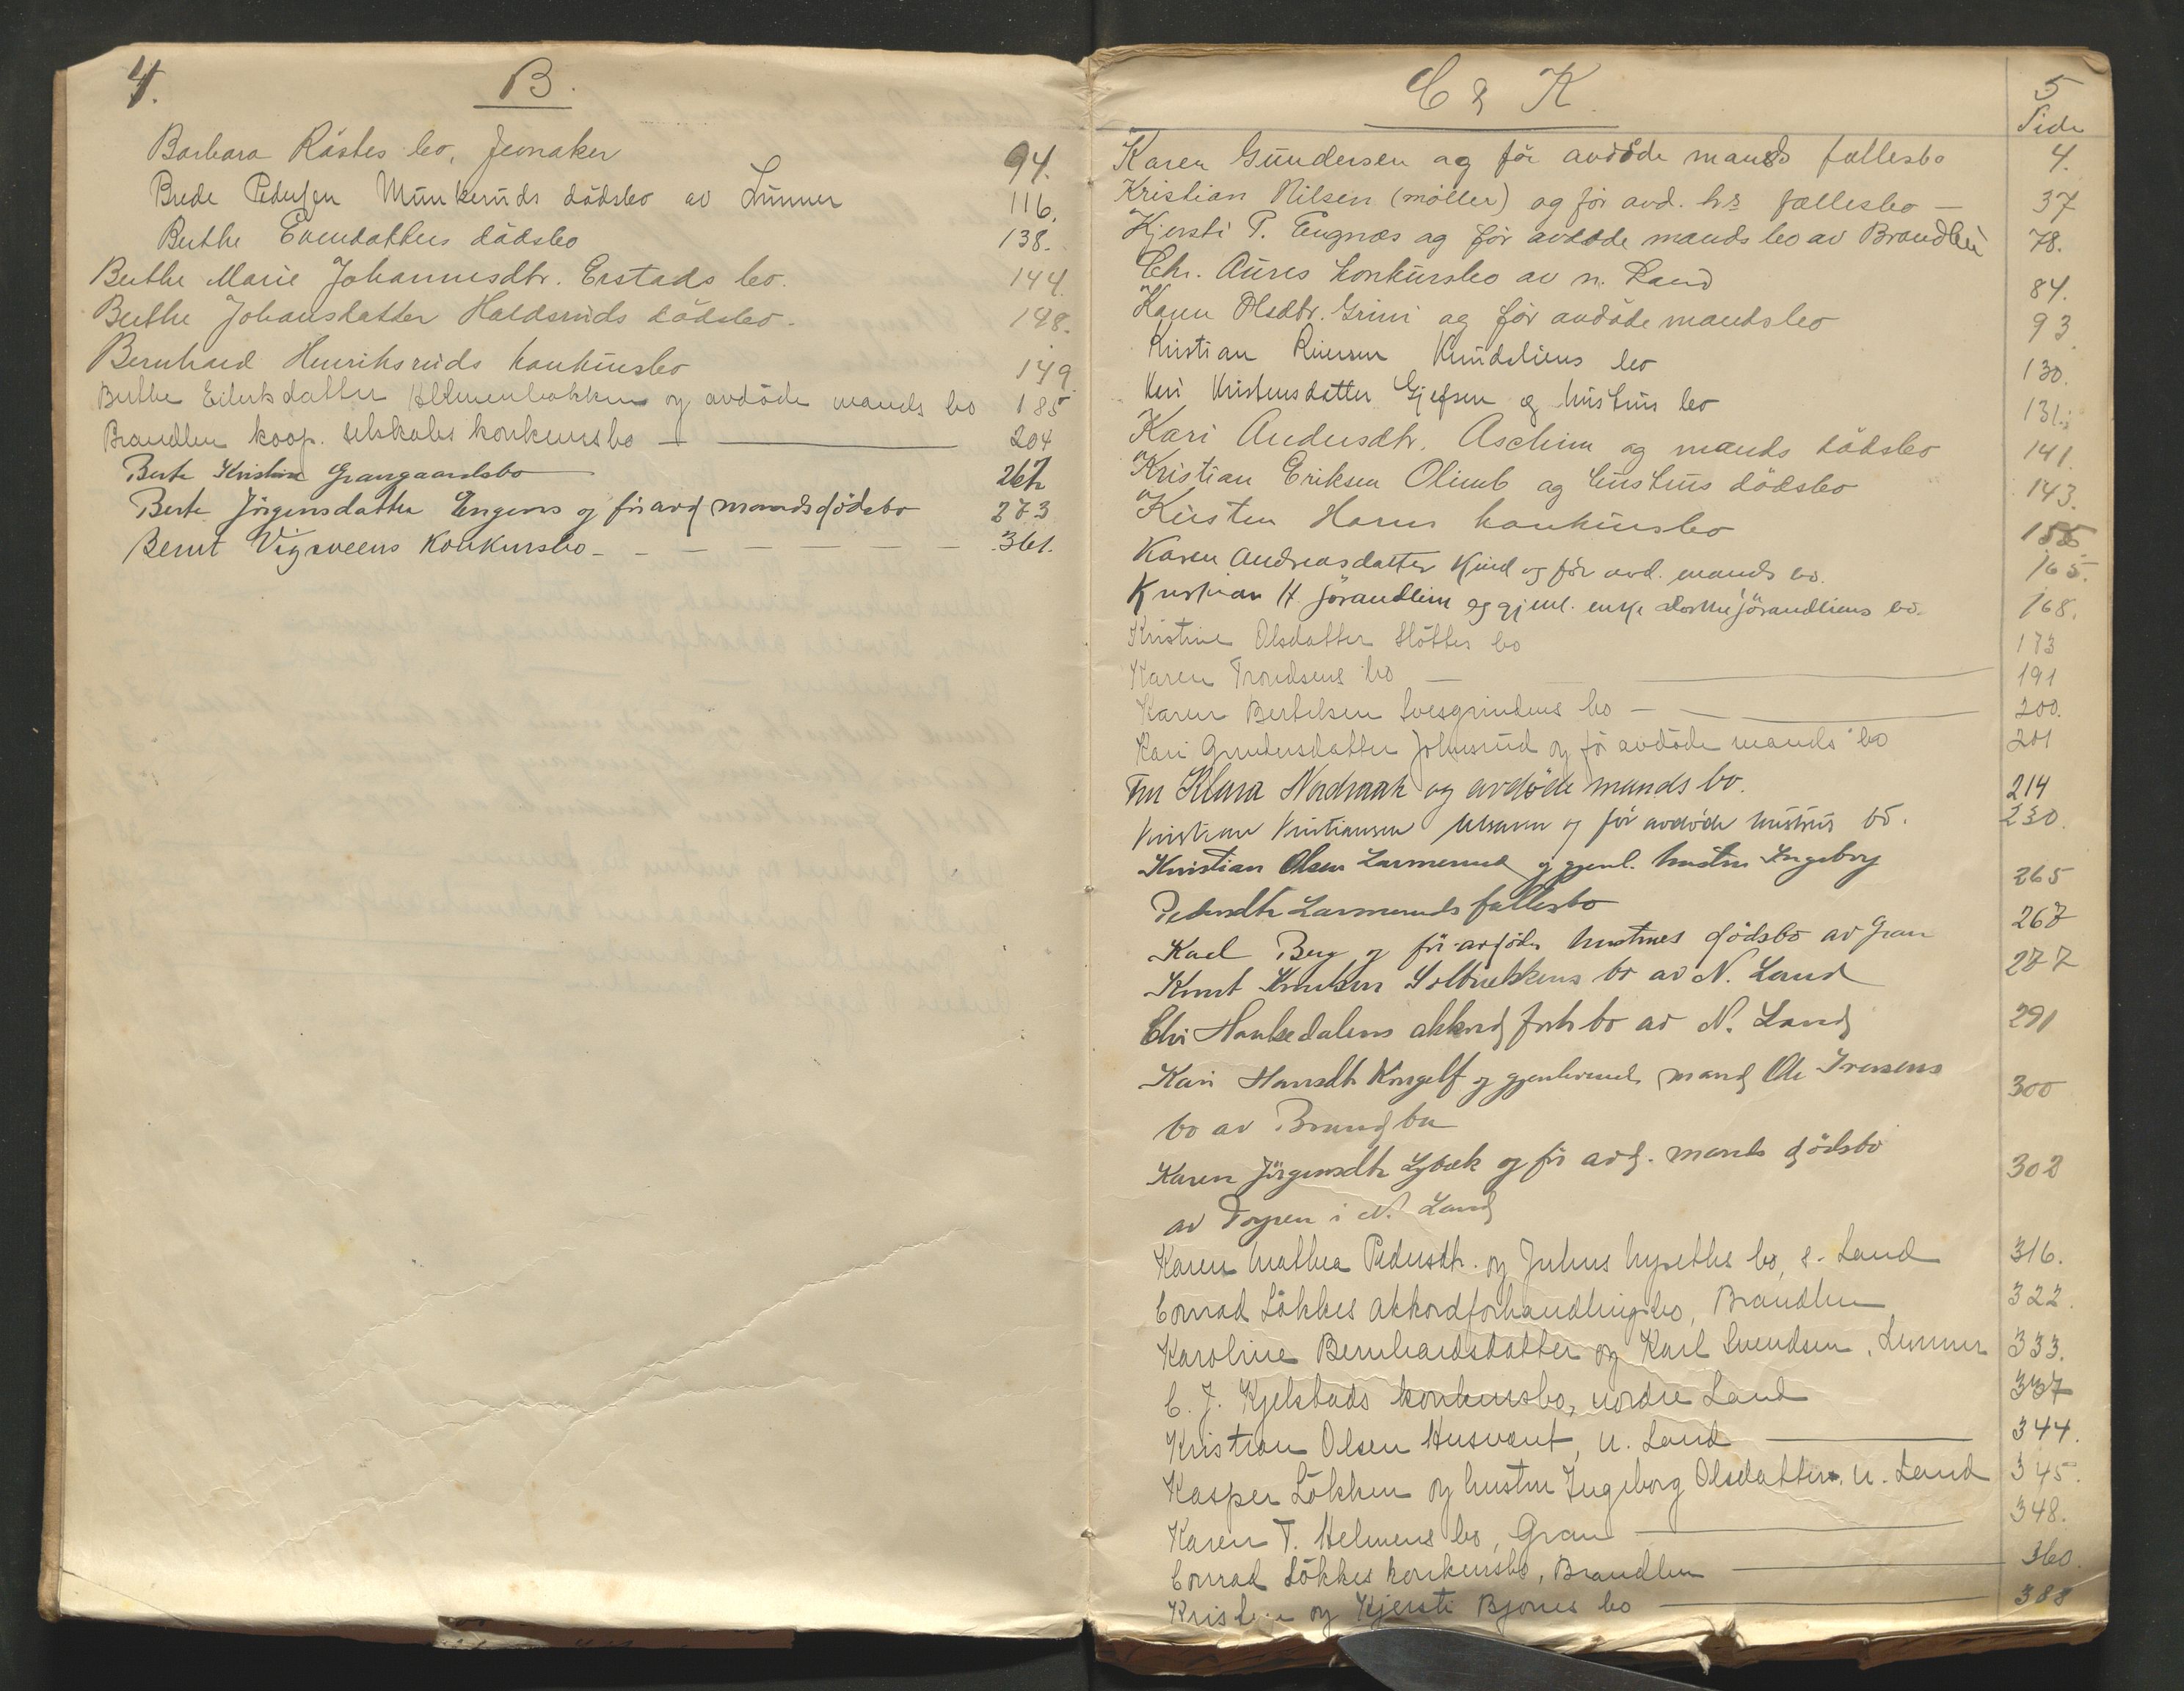 4.
B.
Barbara Råstes bo, Jevnaker 94.
Brede Pedersen Munkeruds dödsbo av Lunner 116.
Berthe Evendatters dödsbo 138.
Berthe Marie Johannesdtr. Erstads bo. 144.
Berthe Johansdatter Haldsruds dödsbo. 148.
Bernhard Henriksruds konkursbo 149.
Berthe Eilertsdatter og avdöde mands bo 185
Brandbu koop. selskabs konkursbo 204
Berte Kristine Grangaardsbo
Berte Jörgensdatter Engens og för avd mands dödsbo 273
Bernt Vigsveens konkursbo 361.
5
C & K.
Side
Karen Gundersen og för avdöde mands fællesbo 4.
Kristian Nilsen (möller) og för avd. hs fællesbo 37
Kjersti P. Engnæs og för avdöde mands bo av Brandbu 78.
Chr. Aures konkursbo av n. Land 84.
Karen Olsdtr. Grini og för avdöde mands bo 93
Kristian Iversen bo 130.
Kari Kristensdatter Gjefsen og hustrus bo 131.
Kari Andersdtr. Aschim og mands dödsbo 141.
Kristian Eriksen Olimb og hustrus dödsbo 143.
Kirsten Horns konkursbo 155
Karen Andreasdatter Kind og för avd. mands bo. 165.
Kristian H. Jörandlien og gjenl. enke Dorthe Jörandliens bo. 168.
Kristine Olsdatter Slöttes bo 173
Karen Trondsens bo 191
Karen Bertelsen bo 200.
Kari Gundersdatter Johnsrud og för avdöde mands bo 201
Fru Klara Nordraak og avdöde mands bo. 214
Kristian Kristiansen og för avdöde hustrus bo. 230.
Kristian Olsen Larmerud og gjenl. hustru Ingeborg
Pedersdtr Larmeruds fællesbo 265
Karl Berg og för avdöde hustrues dödsbo av Gran 267
Knut Knutsen Solbrekkens bo av N. Land 277
Chr Haukedalens akkord forh bo av N. Land 291
Kari Hansdtr Kongelf og gjenlevende mand Ole Iversens
bo av Brandbu 300
Karen Jörgensdtr Lybæk og för avd. mands dödsbo
av Torpen i N. Land 302
Karen Mathea Pedersdtr. og Julius Nysethes bo, s. Land 316.
Conrad Lökkes akkordforhandlingsbo, Brandbu 322.
Karoline Bernhardsdatter og Karl Svendsen, Lunner 333.
C. J. Kjelstads konkursbo, nordre Land 337
Kristian Olsen Husvænt, n. Land 344.
Kasper Lökken og hustru Ingeborg Olsdatter, n. Land 345.
Karen T. Helmens bo, Gran 348.
Conrad Lökkes konkursbo, Brandbu 360.
og Kjersti Bjones bo 388